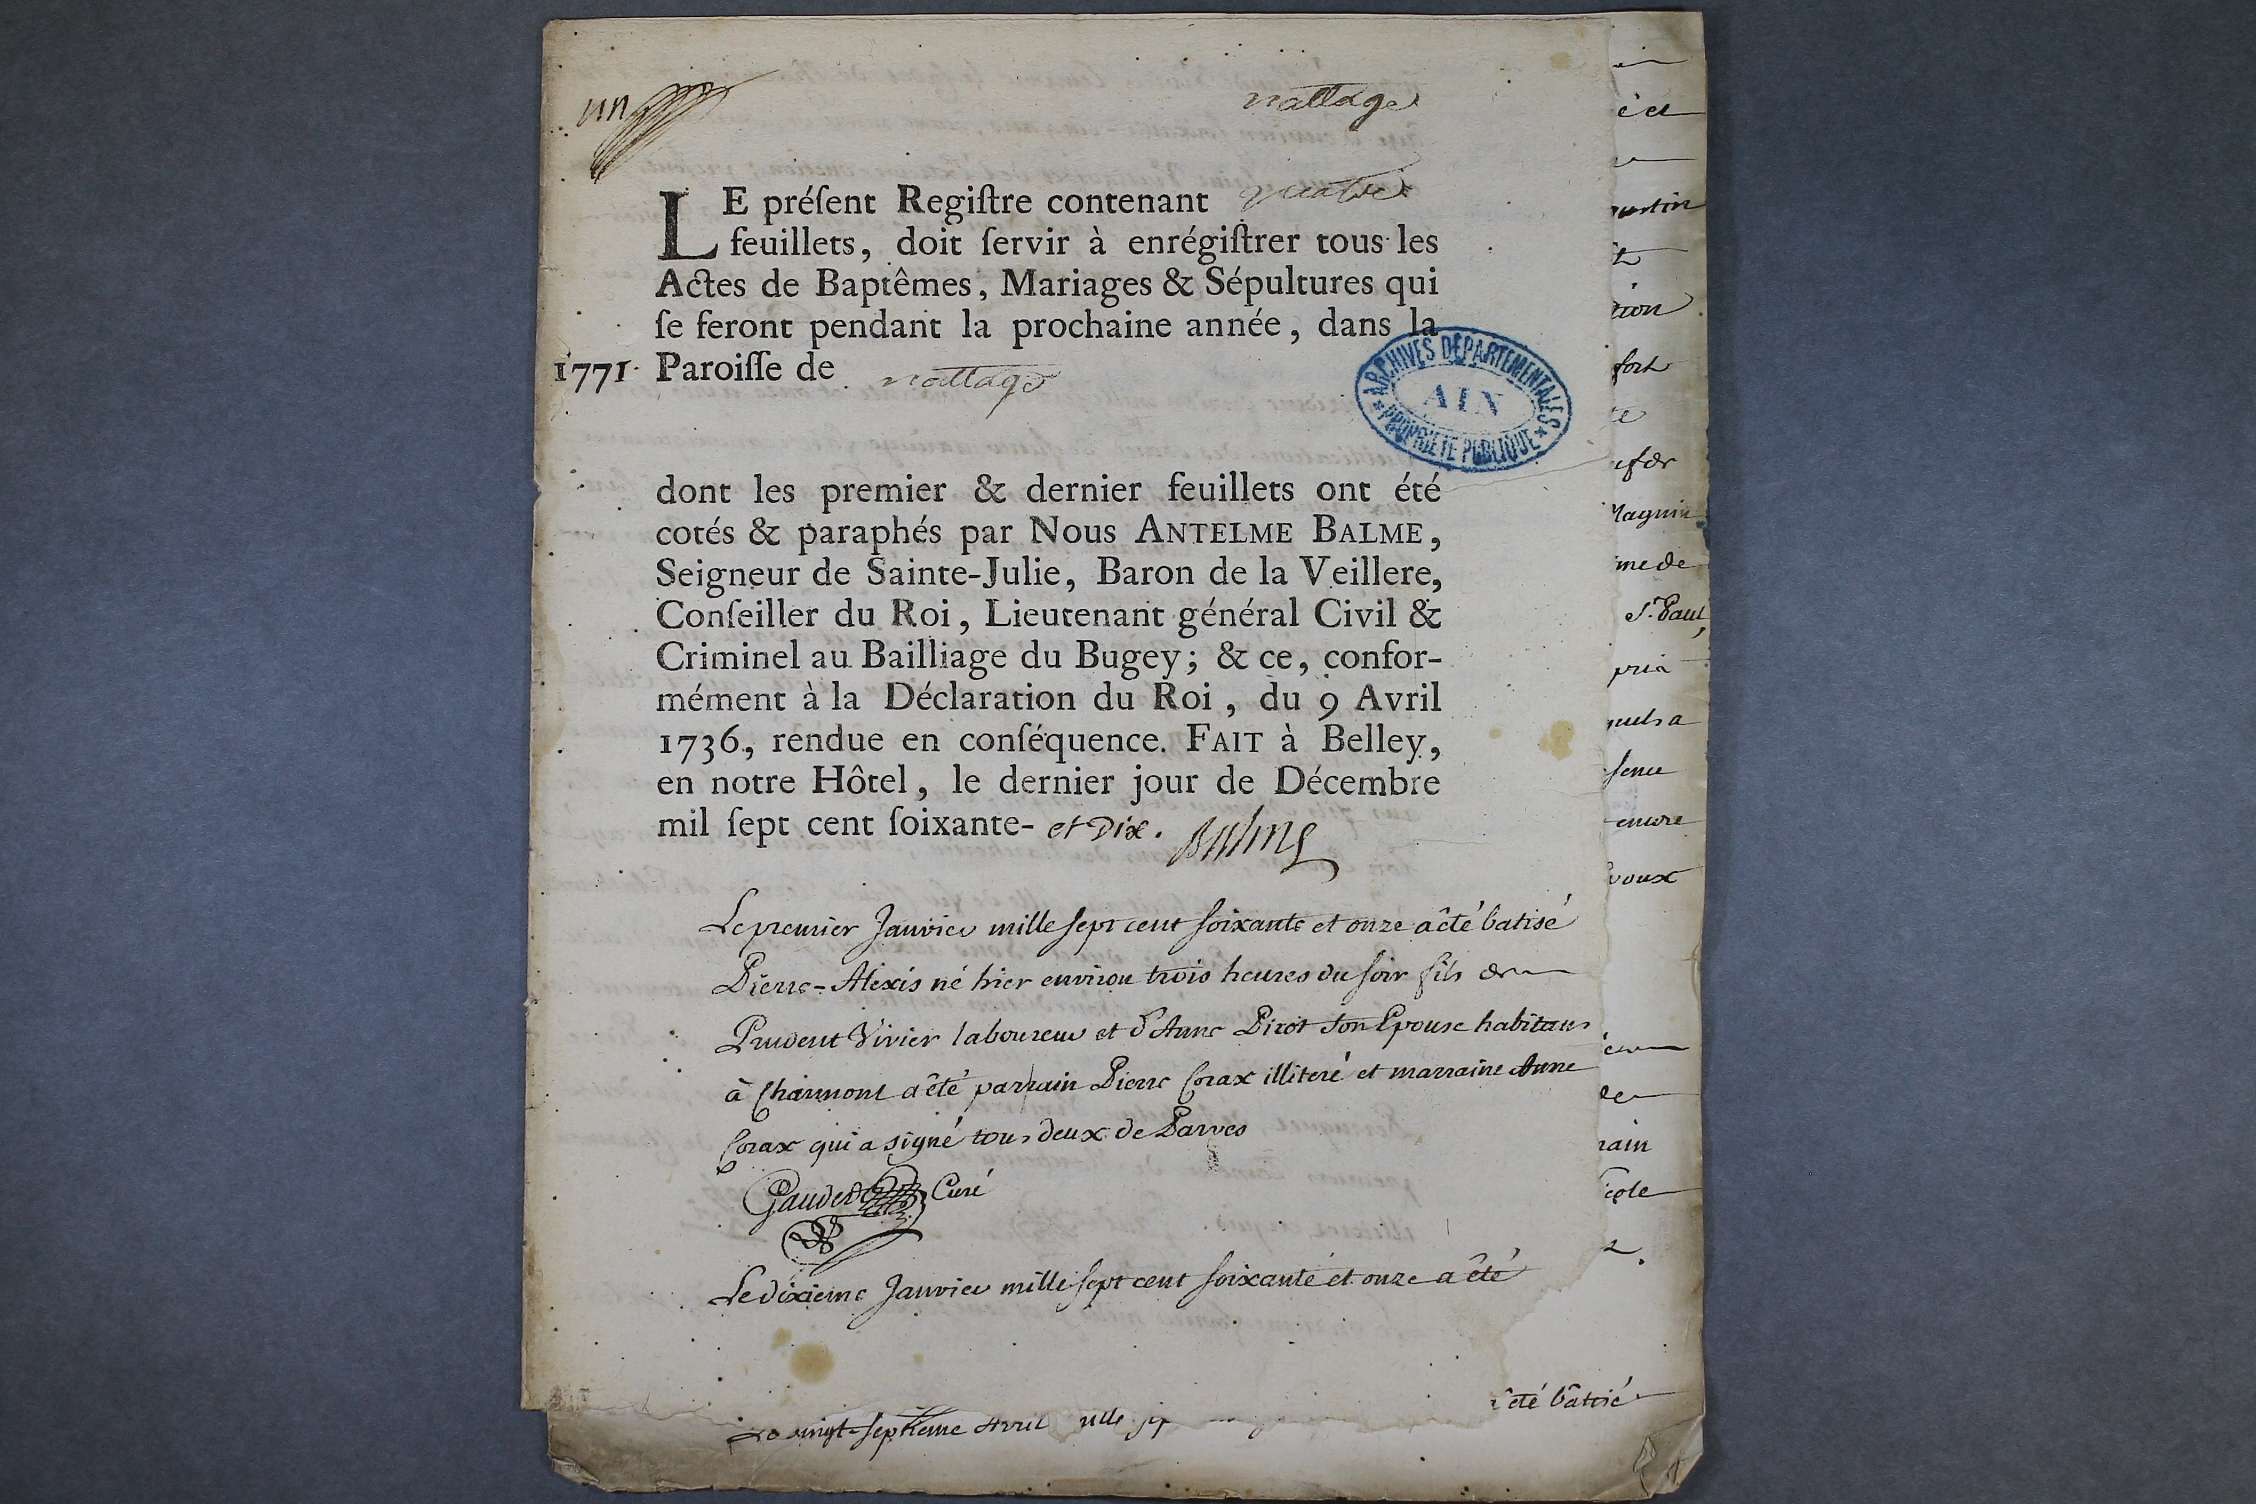 un
nattage
LE préſent Regiſtre contenant quatre
feuillets, doit ſervir à enrégiſtrer tous les
Actes de Baptêmes, Mariages & Sépultures qui
ſe feront pendant la prochaine année, dans la
1771. Paroiſſe de nattage
ARCHIVES DÉPARTEMENTALES
AIN
PROPRIÉTÉ PUBLIQUE
dont les premier & dernier feuillets ont été
cotés & paraphés par Nous ANTELME BALME,
Seigneur de Sainte-Julie, Baron de la Veillere,
Conſeiller du Roi, Lieutenant général Civil &
Criminel au Bailliage du Bugey; & ce, confor-
mément à la Déclaration du Roi, du 9 Avril
1736, rendue en conſéquence. FAIT à Belley,
en notre Hôtel, le dernier jour de Décembre
mil ſept cent ſoixante- et Dix. Balme
Le premier Janvier mille sept cent soixante et onze a êté batisé
Pierre-Alexis né hier environ trois heures du soir fils de
Prudent Vivier laboureur et d'Anne Pirot son Epouse habitans
à Chainmont a êté parrain Pierre Corax illiteré et marraine Anne
Corax qui a signé tous deux de Parves
Gaudet Curé
Le dixieme Janvier mille sept cent soixante et onze a êté
êté bâtisé
Le vingt-septieme Avril